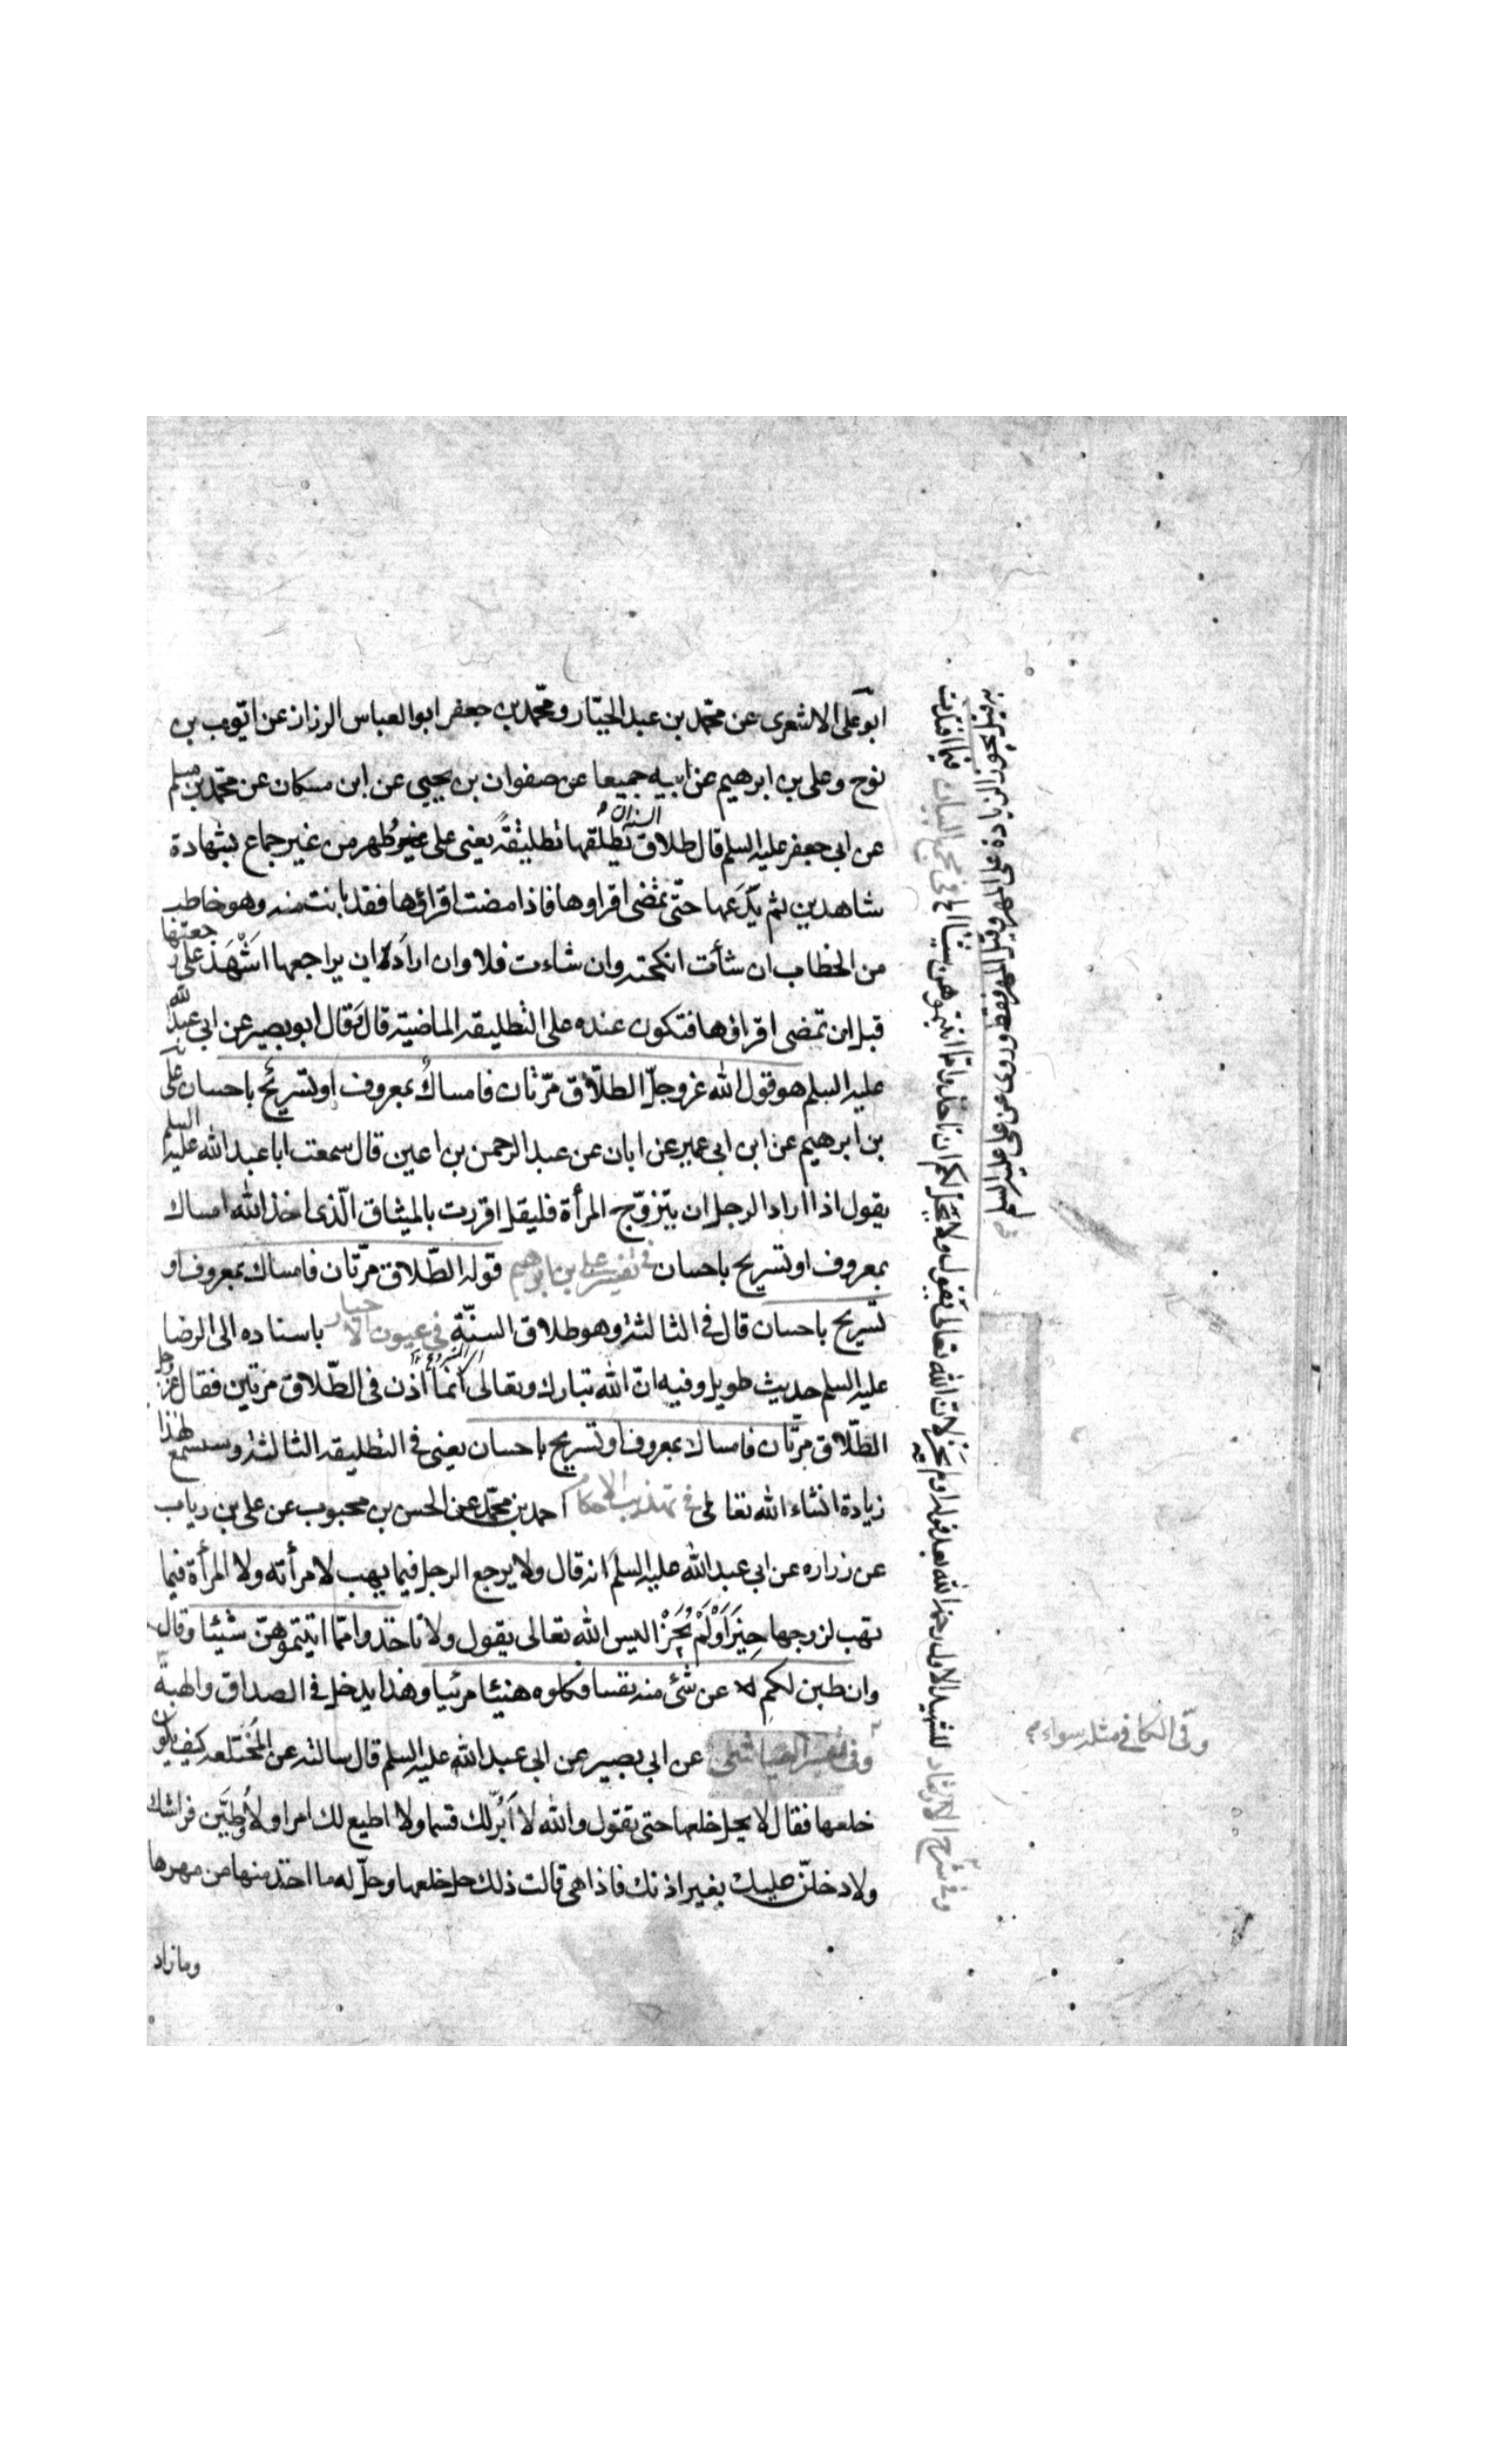 ابو على الاشعرى عن محمّد بن عبد الجبّار و محمّد بن جعفر ابو العباس الرزاز عن ايّوب بن
نوح و على بن ابرهيم عن ابيه جميعا عن صفوان بن يحيى عن ابن مسكان عن محمّد بن مسلم
عن ابى جعفر عليه السلم قال طلاق السنة يطلّقها تطليقةً يعنى على غير طُهر من غير جماع بشهادة
شاهدين ثم يدَعها حتّى تمضى اقراوها فاذا مضت اقراؤها فقد بانت منه وهو خاطب
من الخطاب ان شأت انكحته وان شاءت فلا وان ارادَ ان يراجعها اشْهَدَ على رجعتها
قبل ان تمضى اقراؤها فتكون عنده على التطليقه الماضية قال وَقال ابو بصير عن ابى عبد الله
عليه السلم هو قول الله عزوجلّ الطلاق مرّتان فامساكٌ بمعروف او تسريحٌ باحسان على
بن ابرهيم عن ابن ابى عمير عن ابان عن عبد الرحمن بن اعين قال سمعت ابا عبد الله عليه السلم
يقول اذا اراد الرجل ان يتزوّج المرأة فليقل اقررت بالميثاق الّذى اخذ الله امساك
بمعروف او تسريح باحسان فى تفسير على بن ابرهيم قوله الطّلاق مرّتان فامساك بمعروف او
تسريح باحسان قال فى الثالثة وهو طلاق السنّة فى عيون الاخبار باسناده الى الرضا
عليه السلم حديث طويل وفيه انّ الله تبارك وتعالى انّما اذن فى الطّلاق مرّتين فقال عزّ وجل
الطّلاق مرّتان فامساك بمعروف او تسريح باحسان يعنى فى التطليقه الثالثة وستسمع لهذا
زيادة انشاء الله تعالى فى تهذيب الاحكام احمد بن محمّد عن الحسن بن محبوب عن على بن رياب
عن زراره عن ابى عبد الله عليه السلم انه قال ولا يرجع الرجل فيما يهب لامرأته ولا المرأة فيما
تهب لزوجها حِيزَ اَوْلَمْ يُحَزْ اليس الله تعالى يقول ولا تاخذوا ممّا اتيتموهنّ شيئا وقال
وان طبن لكم عن شئ منه نفسا فكلوه هنيئا مرئيا وهذا يدخل فى الصداق والهبة
وفى تفسير العياشى عن ابى بصير عن ابى عبد الله عليه السلم قال سالته عن المُختلعه كيف يكون
خلعها فقال لا يحل خلعها حتى تقول والله لا اَبُرّ لك قسما ولا اطيع لك امرا ولاُوطِيَن فراشك
ولادخلنّ عليك بغير اذنك فاذا هى قالت ذلك حل خلعها وحلّ له ما اخذ منها من مهرها
وما زاد
وفى شرح الارشاد للشهيد الاول رحمه الله بعد قوله او لم يحز لان الله تعالى يقول ولا يحل لكم ان تاخذوا مما اتيتموهن شيئا فى مجمع البيان فيما افتدت
به يجوز الزيادة على المهر وقيل المهر فقط وروى عن على عليه السلم
وفى الكافى مثله سواء